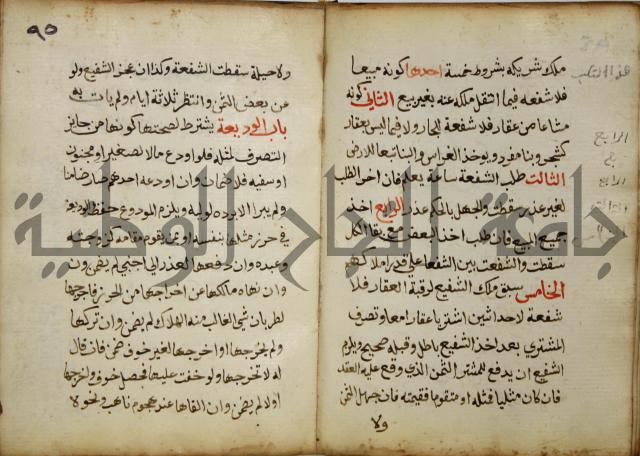 ملك شريكه بشروط خمسة احدها كونه مبيعا
فلا شفعه فيما انتقل ملكه عنه بغير بيع الثاني كونه
مشاعا من عقار فلا شفعة للجار ولا فيما ليس بعقار
كشجر وبنا مفرد ويوخذ الغراس والبنا تبعا للارض
الثالث طلب الشفعة ساعة يعلم فان اخر الطلب
لغير عذر سقطت والجهل بالحكم عذر الرابع اخذ
جميع المبيع فان طلب اخذ البعض مع بقا الكل
سقطت والشفعة بين الشفعا على قدر املاكهم
الخامس سبق ملك الشفيع لرقبة العقار فلا
شفعة لاحد اثنين اشتريا عقارا معا وتصرف
المشتري بعد اخذ الشفيع باطل وقبله صحيح ويلزم
الشفيع ان يدفع للمشتري الثمن الذي وقع عليه العقد
فان كان مثليا فمثله او متقوما فقيمته فان جهل الثمن
ولا
٩٥
ولا حيلة سقطت الشفعة وكذا ان عجز الشفيع ولو
عن بعض الثمن وانتظر ثلاثة ايام ولم يات به
باب الوديعة يشترط لصحتها كونها من جايز
التصرف لمثله فلو اودع ماله لصغير او مجنون
او سفيه فلا ضمان وان اودعه احدهم صار ضامنا
ولم يبرا الا برده لوليه ويلزم المودوع حفظ الوديعة
في حرز مثلها بنفسه او بمن يقوم مقامه كزوجته
وعبده وان دفعها لعذر الى اجنبي لم يضمن وان
وان نهاه مالكها عن اخراجها من الحرز فاخرجها
لطريان شي الغالب منه الهلاك لم يضمن وان تركها
ولم يخرجها او اخرجها لغير خوف ضمن فان قال
له لا تخرجها ولو خفت عليها فحصل خوف واخرجها
او لا لم يضمن وان القاها عند هجوم ناهب ونحوه لا
جامعة النجاح الوطنية